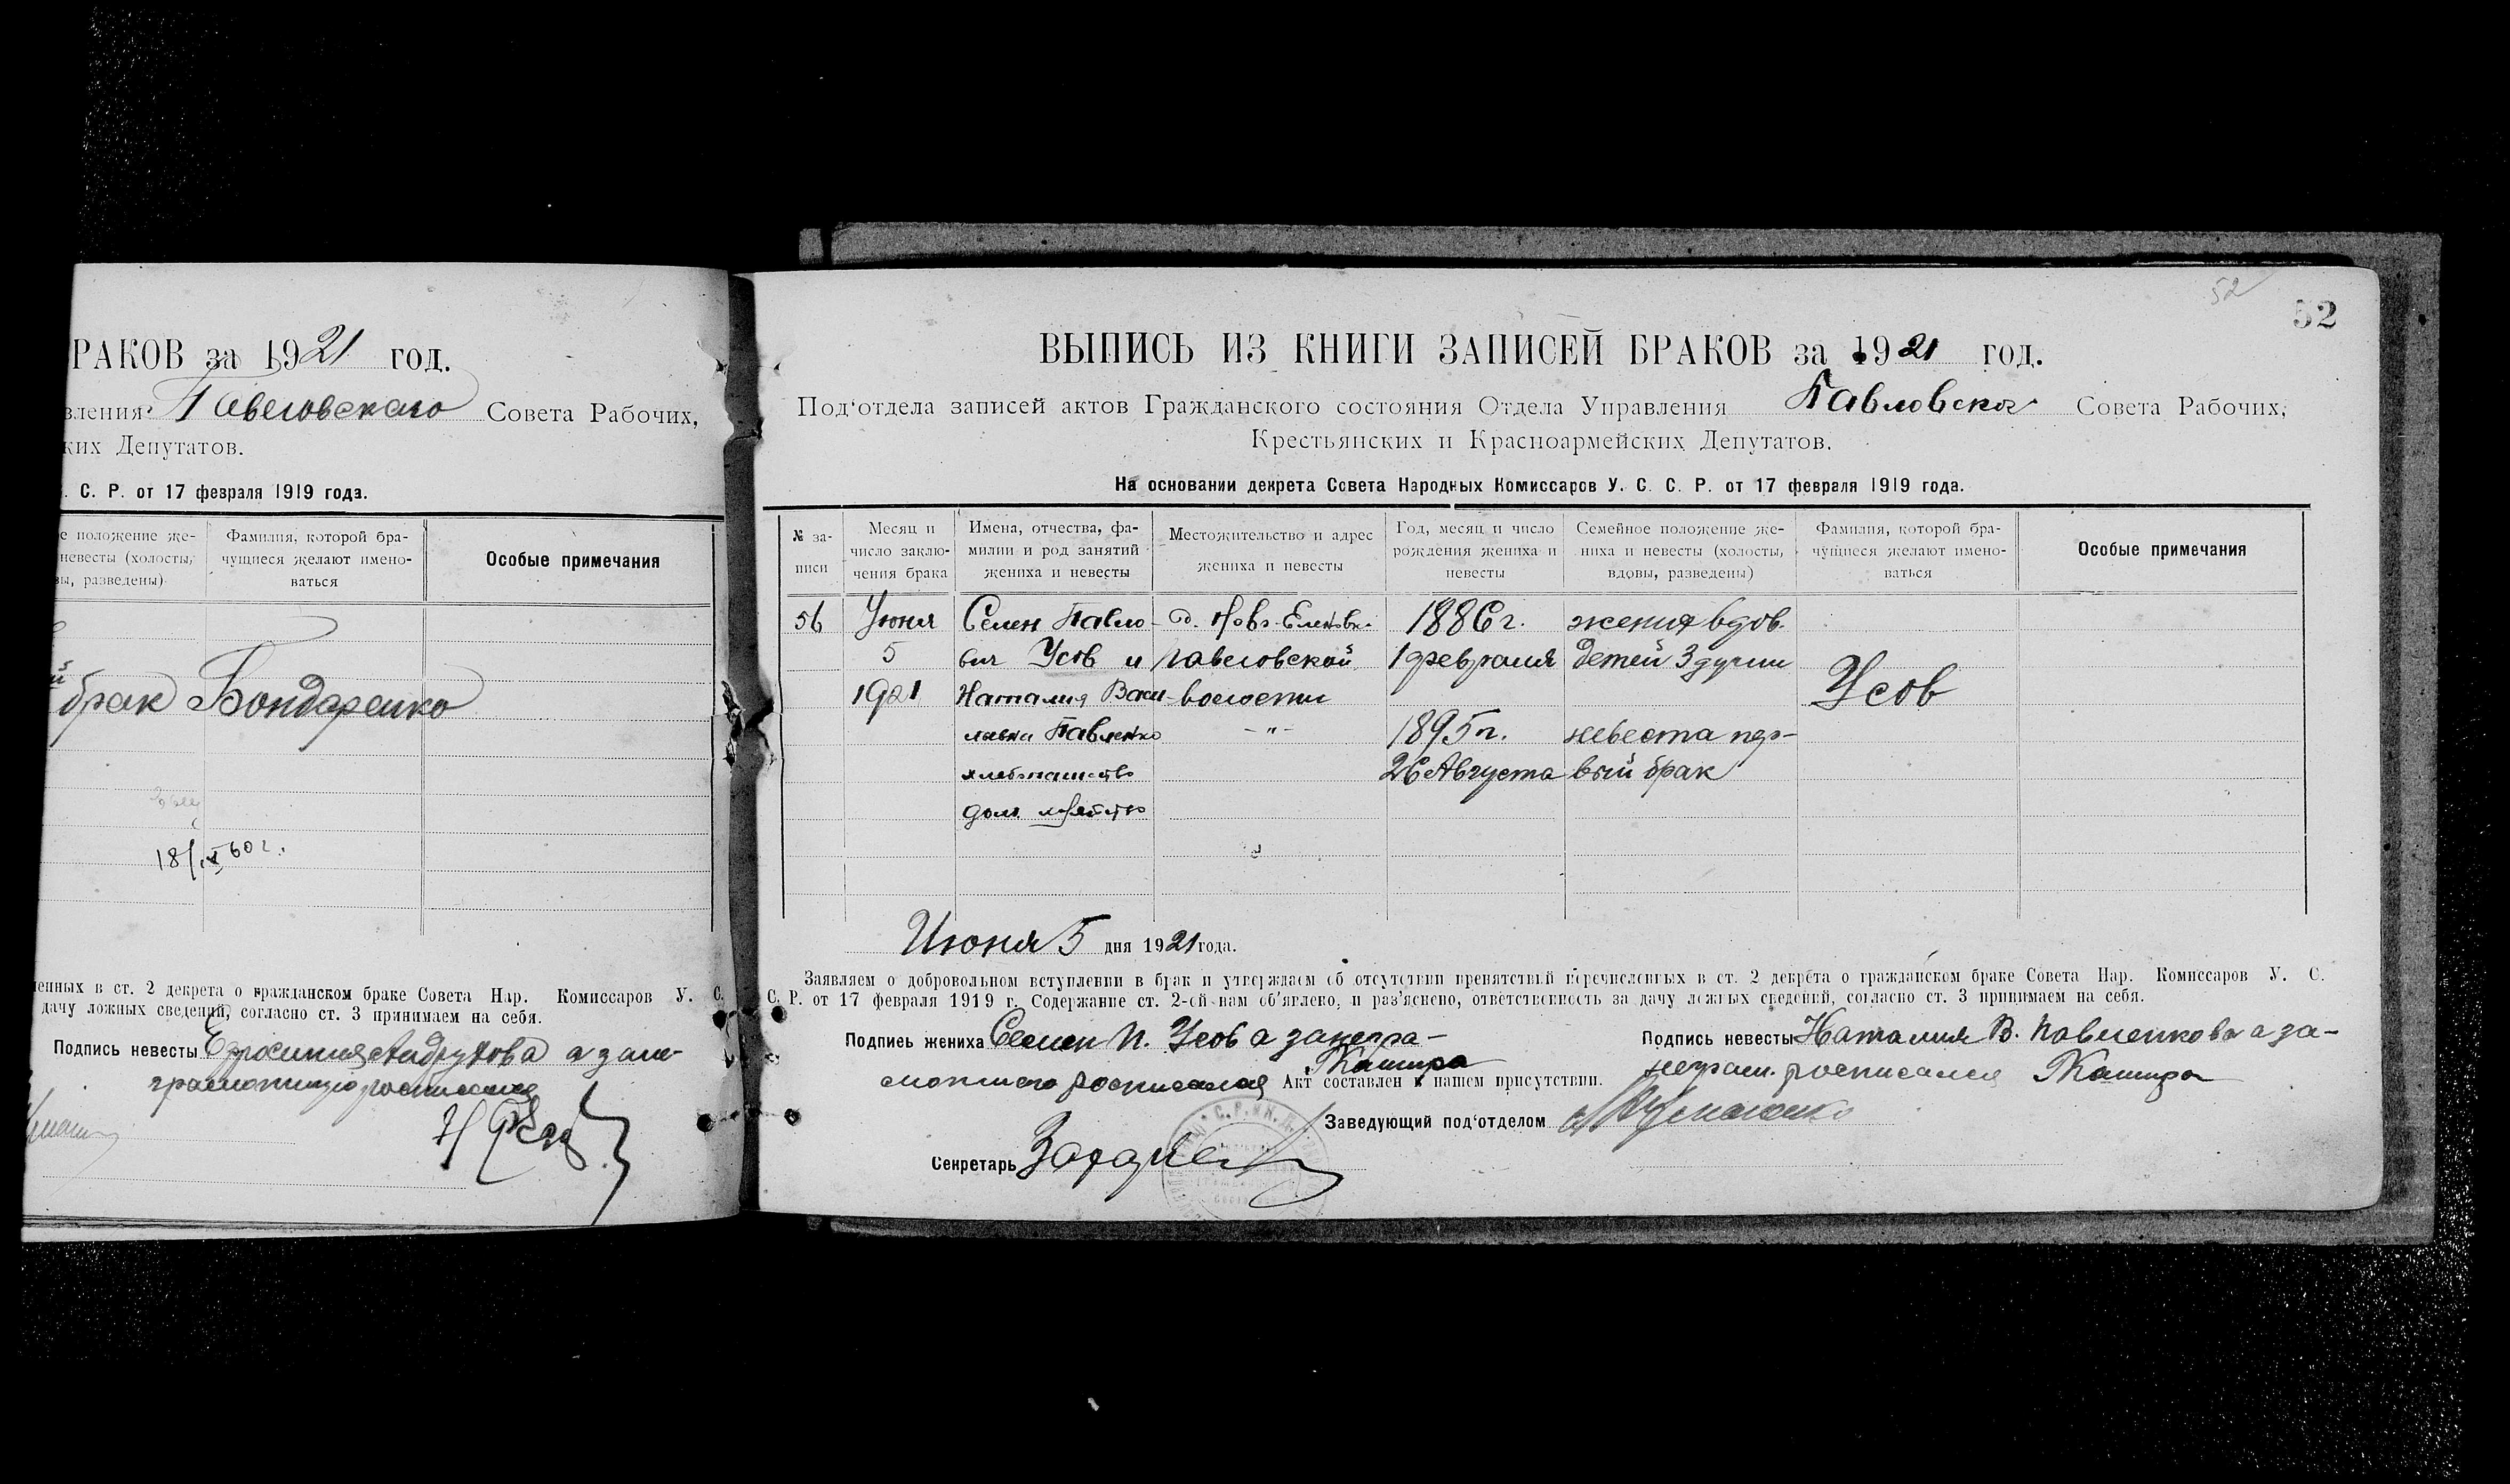 РАКОВ за 1921 год.
вления Павловского Совета Рабочих,
ких Депутатов.
. С. Р. от 17 февраля 1919 года.
е положение же-
невесты (холосты,
вы, разведены)
Фамилия, которой бра-
чущиеся желают имено-
ваться
Особые примечания
й
брак Бондаренко
18/ 60 г.
ленных в ст. 2 декрета о гражданском браке Совета Нар. Комиссаров У. С.
дачу ложных сведений, согласно ст. 3 принимаем на себя.
Подпись невесты Ефросиния а за не-
грамотную росписался
52
52
ВЫПИСЬ ИЗ КНИГИ ЗАПИСЕЙ БРАКОВ за 1921 год.
Под'отдела записей актов Гражданского состояния Отдела Управления Павловског Совета Рабочих,
Крестьянских и Красноармейских Депутатов.
На основании декрета Совета Народных Комиссаров У. С. С. Р. от 17 февраля 1919 года.
№ за-
писи
Месяц и
число заклю-
чения брака
Имена, отчества, фа-
милии и род занятий
жениха и невесты
Местожительство и адрес
жениха и невесты
Год, месяц и число
рождения жениха и
невесты
Семейное положение же-
ниха и невесты (холосты,
вдовы, разведены)
Фамилия, которой бра-
чущиеся желают имено-
ваться
Особые примечания
56 Июня Семен Павло- д. Ново-Еленовк. 1886 г. жених вдов.
5 вич Усов и Павловской 1 февраля детей 3 души
1921 Наталия Васи- волости Усов
лъевна Павленко -"- 1895 г. невеста пер-
хлебопашество 26 Августа вый брак
дом. хозяйство
Июня 5 дня 1921 года.
Заявляем о добровольном вступлении в брак и утверждаем об отсутствии препятствий перечисленных в ст. 2 декрета о гражданском браке Совета Нар. Комиссаров У. С.
С. Р. от 17 февраля 1919 г. Содержание ст. 2-ой нам об'явлено, и раз'яснено, ответственность за дачу ложных сведений, согласно ст. 3 принимаем на себя.
Подпись жениха Семен П. Усов а за негра-
мотного росписался Акт составлен в нашем присутствии.
Подпись невесты Наталия В. Павленкова а за-
неграм. росписался
Заведующий под'отделом
Секретарь